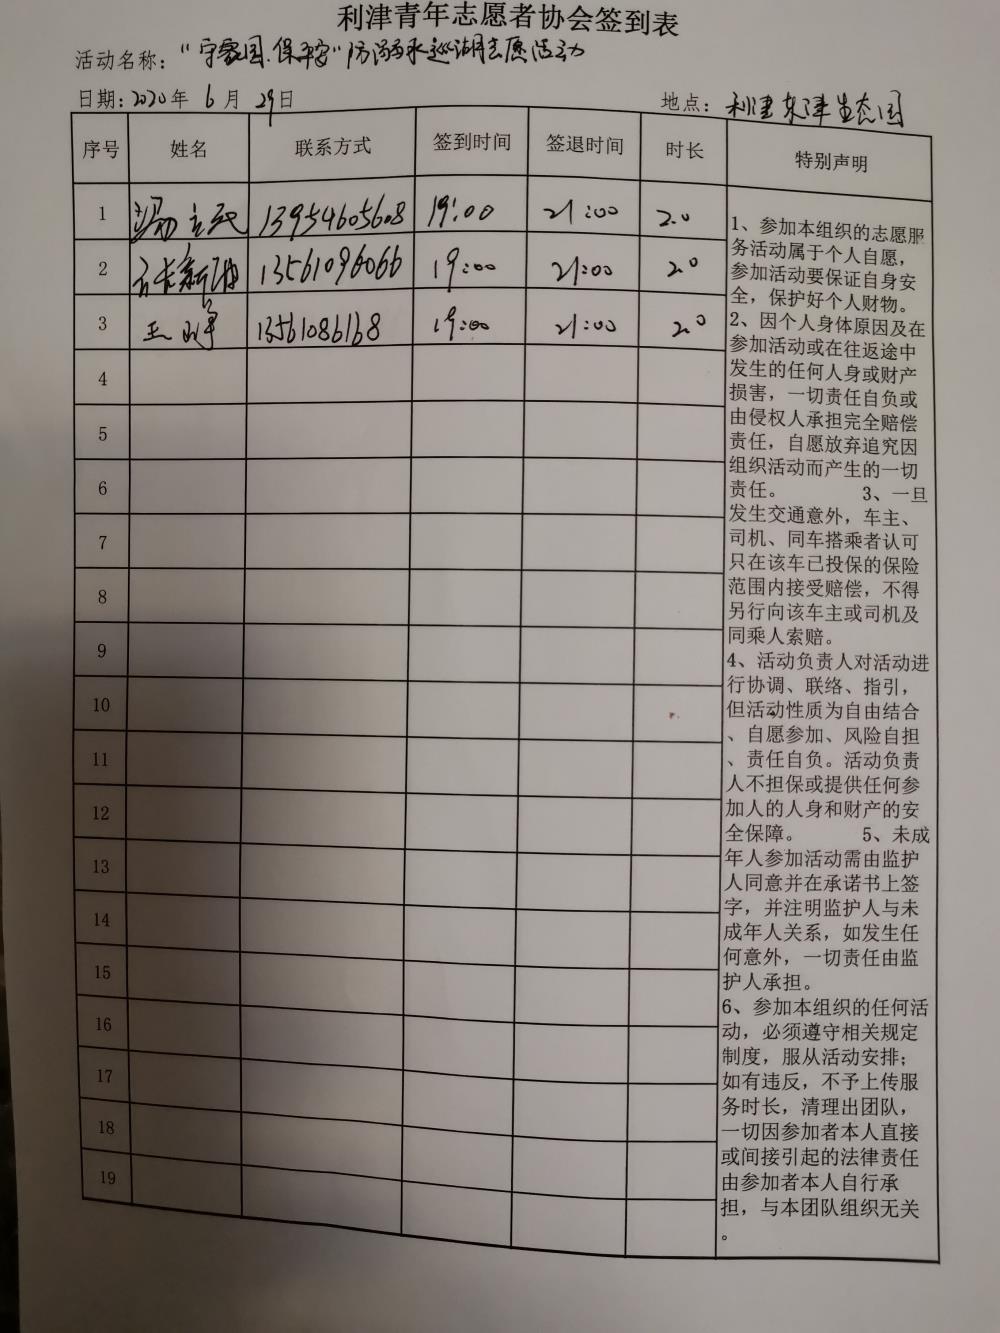 利津青年志愿者协会签到表
活动名称："守家园.保平安"防溺水巡湖志愿活动
日期：2020年 6 月 29日 地点：利津东津生态园
序号 姓名 联系方式 签到时间 签退时间 时长 特别声明
1 13954605608 19:00 21:00 2.0
2 13561096066 19:00 21:00 2.0
3 王 13561086168 19:00 21:00 2.0
4
5
6
7
8
9
10
11
12
13
14
15
16
17
18
19
1、参加本组织的志愿服
务活动属于个人自愿，
参加活动要保证自身安
全，保护好个人财物。
2、因个人身体原因及在
参加活动或在往返途中
发生的任何人身或财产
损害，一切责任自负或
由侵权人承担完全赔偿
责任，自愿放弃追究因
组织活动而产生的一切
责任。 3、一旦
发生交通意外，车主、
司机、同车搭乘者认可
只在该车已投保的保险
范围内接受赔偿，不得
另行向该车主或司机及
同乘人索赔。
4、活动负责人对活动进
行协调、联络、指引，
但活动性质为自由结合
、自愿参加、风险自担
、责任自负。活动负责
人不担保或提供任何参
加人的人身和财产的安
全保障。 5、未成
年人参加活动需由监护
人同意并在承诺书上签
字，并注明监护人与未
成年人关系，如发生任
何意外，一切责任由监
护人承担。
6、参加本组织的任何活
动，必须遵守相关规定
制度，服从活动安排；
如有违反，不予上传服
务时长，清理出团队，
一切因参加者本人直接
或间接引起的法律责任
由参加者本人自行承
担，与本团队组织无关
。